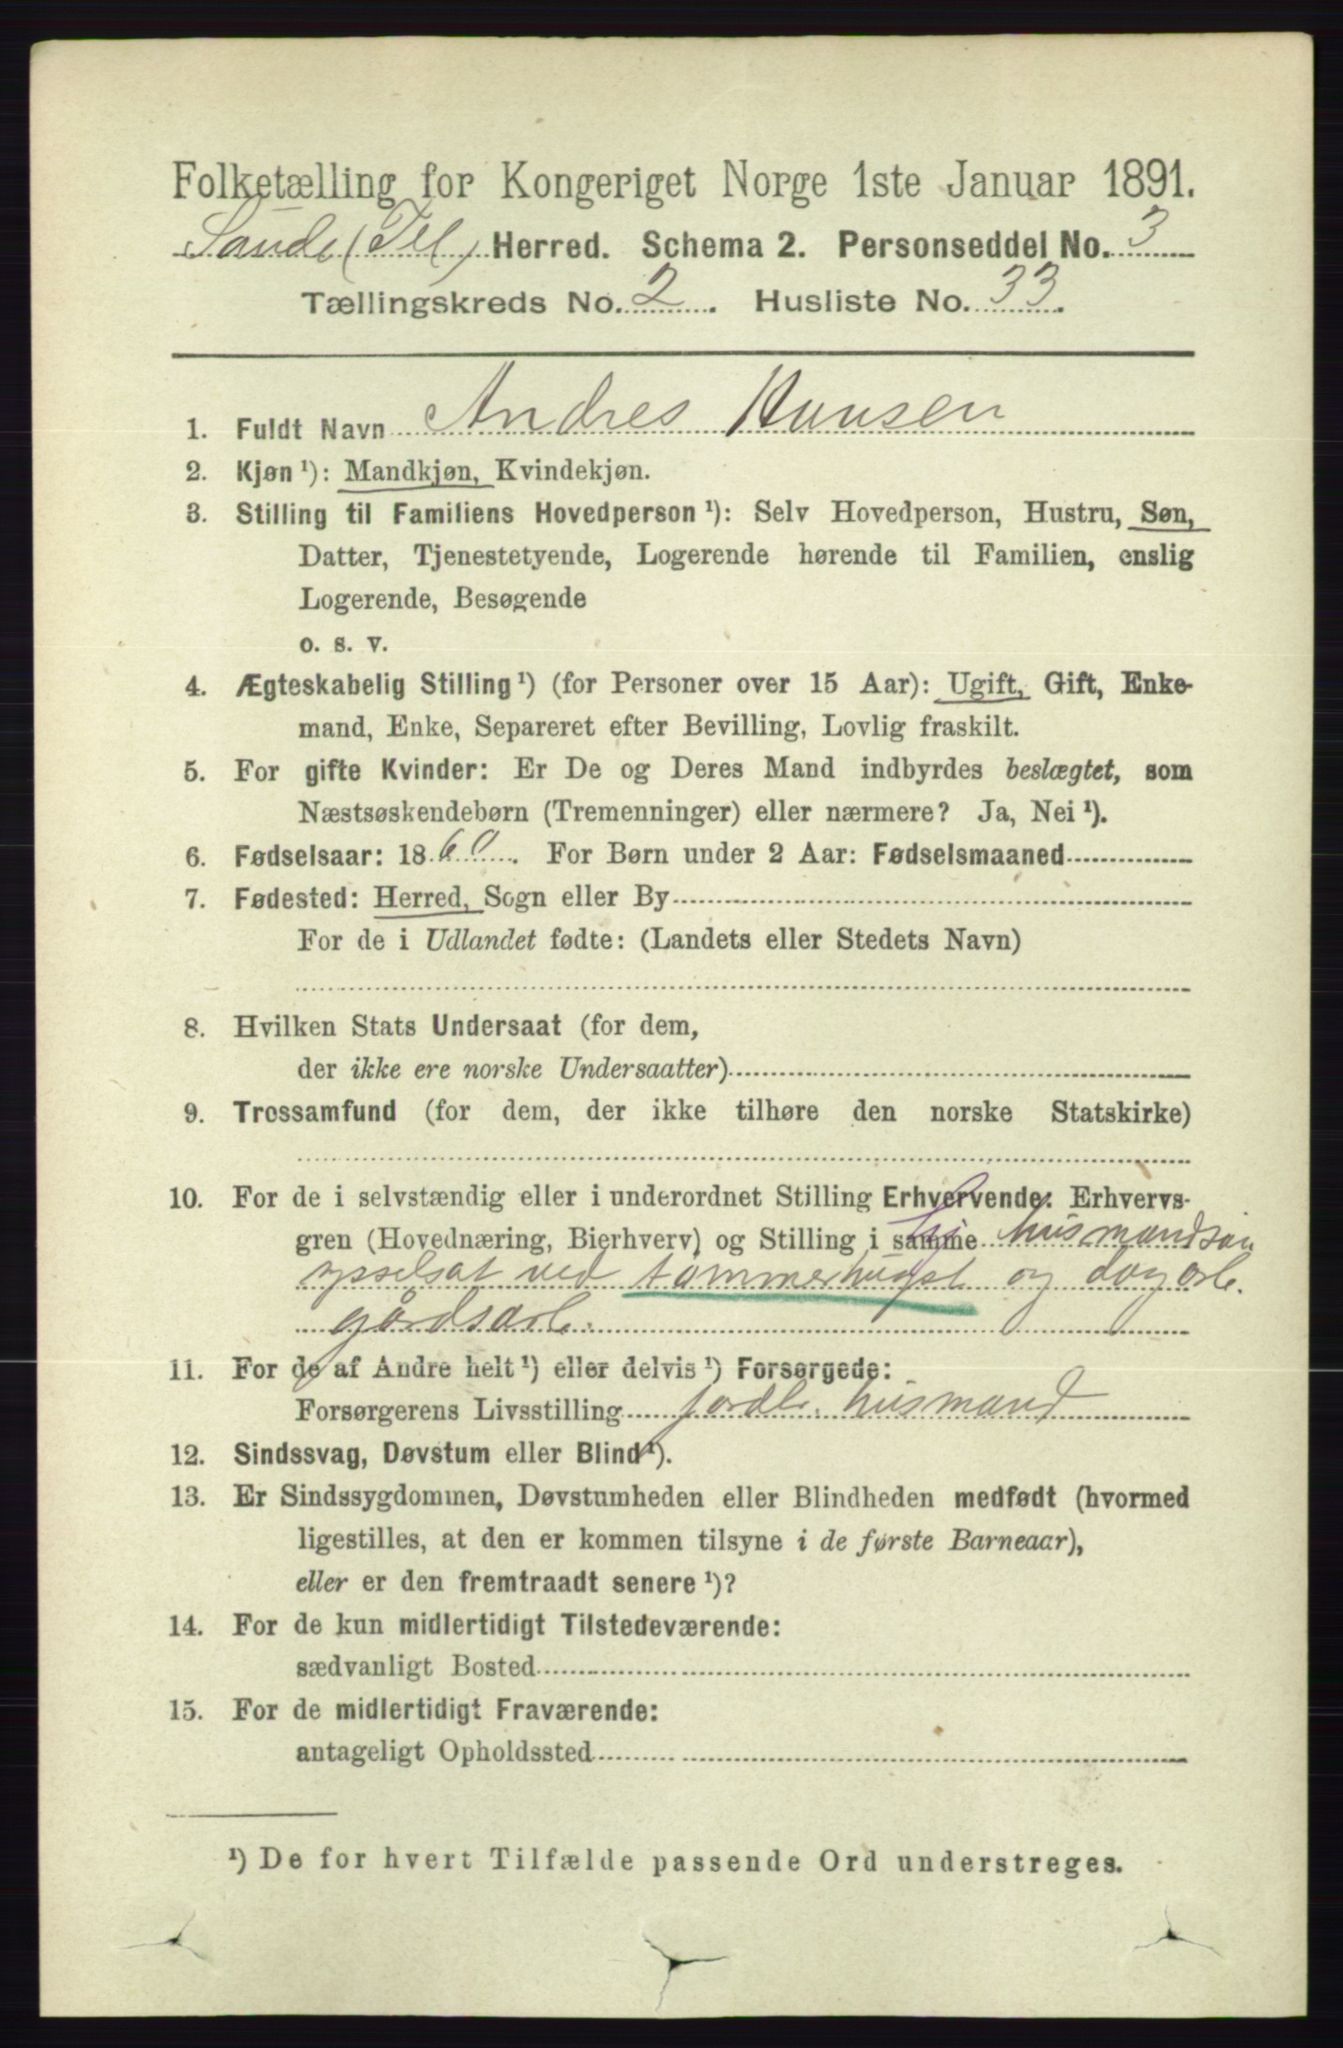 Folketælling for Kongeriget Norge 1ste Januar 1891.
Saude (Tel) Herred. Schema 2. Personseddel No. 3
Tællingskreds No. 2. Husliste No. 33.
1. Fuldt Navn Andres Hansen
2. Kjøn ¹): Mandkjøn, Kvindekjøn.
3. Stilling til Familiens Hovedperson ¹): Selv Hovedperson, Hustru, Søn,
Datter, Tjenestetyende, Logerende hørende til Familien, enslig
Logerende, Besøgende
o. s. v.
4. Ægteskabelig Stilling ¹) (for Personer over 15 Aar): Ugift, Gift, Enke-
mand, Enke, Separeret efter Bevilling, Lovlig fraskilt.
5. For gifte Kvinder: Er De og Deres Mand indbyrdes beslægtet, som
Næstsøskendebørn (Tremenninger) eller nærmere? Ja, Nei ¹).
6. Fødselsaar: 1860. For Børn under 2 Aar: Fødselsmaaned
7. Fødested: Herred, Sogn eller By
For de i Udlandet fødte: (Landets eller Stedets Navn)
8. Hvilken Stats Undersaat (for dem,
der ikke ere norske Undersaatter)
9. Trossamfund (for dem, der ikke tilhøre den norske Statskirke)
10. For de i selvstændig eller i underordnet Stilling Erhvervende: Erhvervs-
gren (Hovednæring, Bierhverv) og Stilling i samme husmandsøn
ysselsat ved tømmerhugst og dagarb.
gårdsarb.
11. For de af Andre helt ¹) eller delvis ¹) Forsørgede:
Forsørgerens Livsstilling jordb. husmand
12. Sindssvag, Døvstum eller Blind ¹).
13. Er Sindssygdommen, Døvstumheden eller Blindheden medfødt (hvormed
ligestilles, at den er kommen tilsyne i de første Barneaar),
eller er den fremtraadt senere ¹)?
14. For de kun midlertidigt Tilstedeværende:
sædvanligt Bosted
15. For de midlertidigt Fraværende:
antageligt Opholdssted
¹) De for hvert Tilfælde passende Ord understreges.